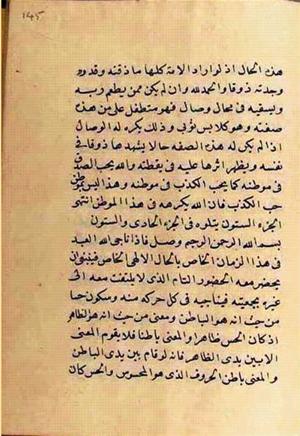 ١٤٥
هذه الحال اذ لو اراد الامة كلها ما ذقته وقد ورد
وجدته ذوقا والحمد لله وان لم يكن ممن يطعم ربه
ويسقيه في محال وصال فهو متطفل على من هذه
صفته وهو كلابس ثوبي وذلك يكره له الوصال
اذا لم يكن له هذه الصفه حالا يشهدها ذوقا في
نفسه ويظهر اثرها عليه في يقظته والله يحب الصدق
في موطنه كما يحب الكذب في موطنه وهذا ليس موطن
حب الكذب فان الله يكرهه في هذا الموطن انتهى
الجزء الستون يتلوه في الجزء الحادى والستون
بسم الله الرحمن الرحيم وصل فاذا ناجى الله العبد
في هذا الزمان الخاص بالحال الالهي الخاص فينبغى ان
يحضر معه الحضور التام الذى لا يلتفت معه الى
غيره بجمعيته فيناجيه في كل حركه منه وسكون حسا
من حيث انه هو الباطن ومعنى من حيث انه هو الظاهر
اذ كان الحس ظاهرا والمعنى باطنا فلا يقوم المعنى
الا بين يدى الظاهر فانه لو قام بين يدى الباطن
والمعنى باطن الحروف الذى هو المحسوس والحس كان